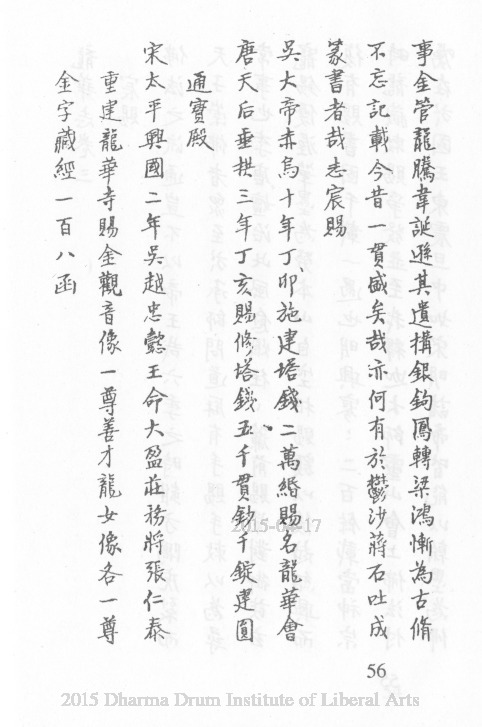 事金管龍騰韋誕遜其遺構銀鉤鳳轉梁鴻慚為古脩
不忘記載今昔一貫盛矣哉亦何有於鬱沙蔣石吐成
篆書者哉志宸賜
吳大帝赤烏十年丁卯施建塔錢二萬緡賜名龍華會
唐天后垂拱三年丁亥賜修塔錢五千貫鈔千錠建圓
通寶殿
宋太平興國二年吳越忠懿王命大盈莊務將張仁泰
重建龍華寺賜金觀音像一尊善才龍女像各一尊
金字藏經一百八函
56
2015-04-17
2015 Dharma Drum Institute of Liberal Arts